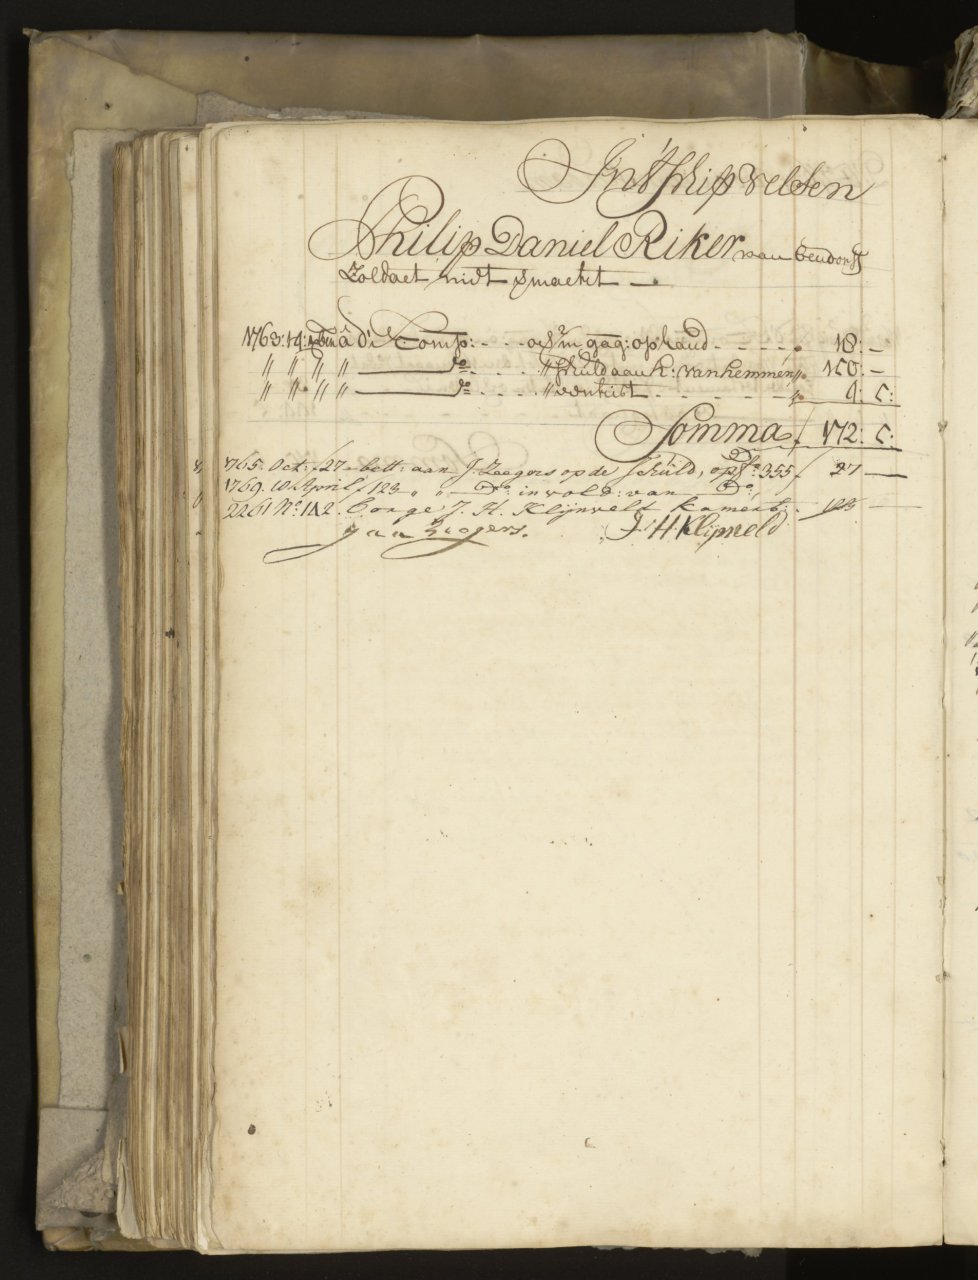 Int schip Velsen
Philip Daniel Riker van Bendorff
Zoldaet midt smaekt
1763:14: xbin â d'E Comp: - - - over 2/m gag: op hand - - - - ƒ 18:-
" " " " do - - - " schuld aan k: van hemmen " 150:-
" " " " do - - - " een kist - - - - - " 4: 5:
Somma ƒ 172: 5:
1765. Oct: ƒ 27 bett: aan J: Zeegers op de schuld, op fo 355 ƒ 27 —
1769. 10 April ƒ 123 " " do in vold: van do,
2261 No 112. C: J. H. Klijnvelt 123 —
Jan Zeegers. J H Klijnveld